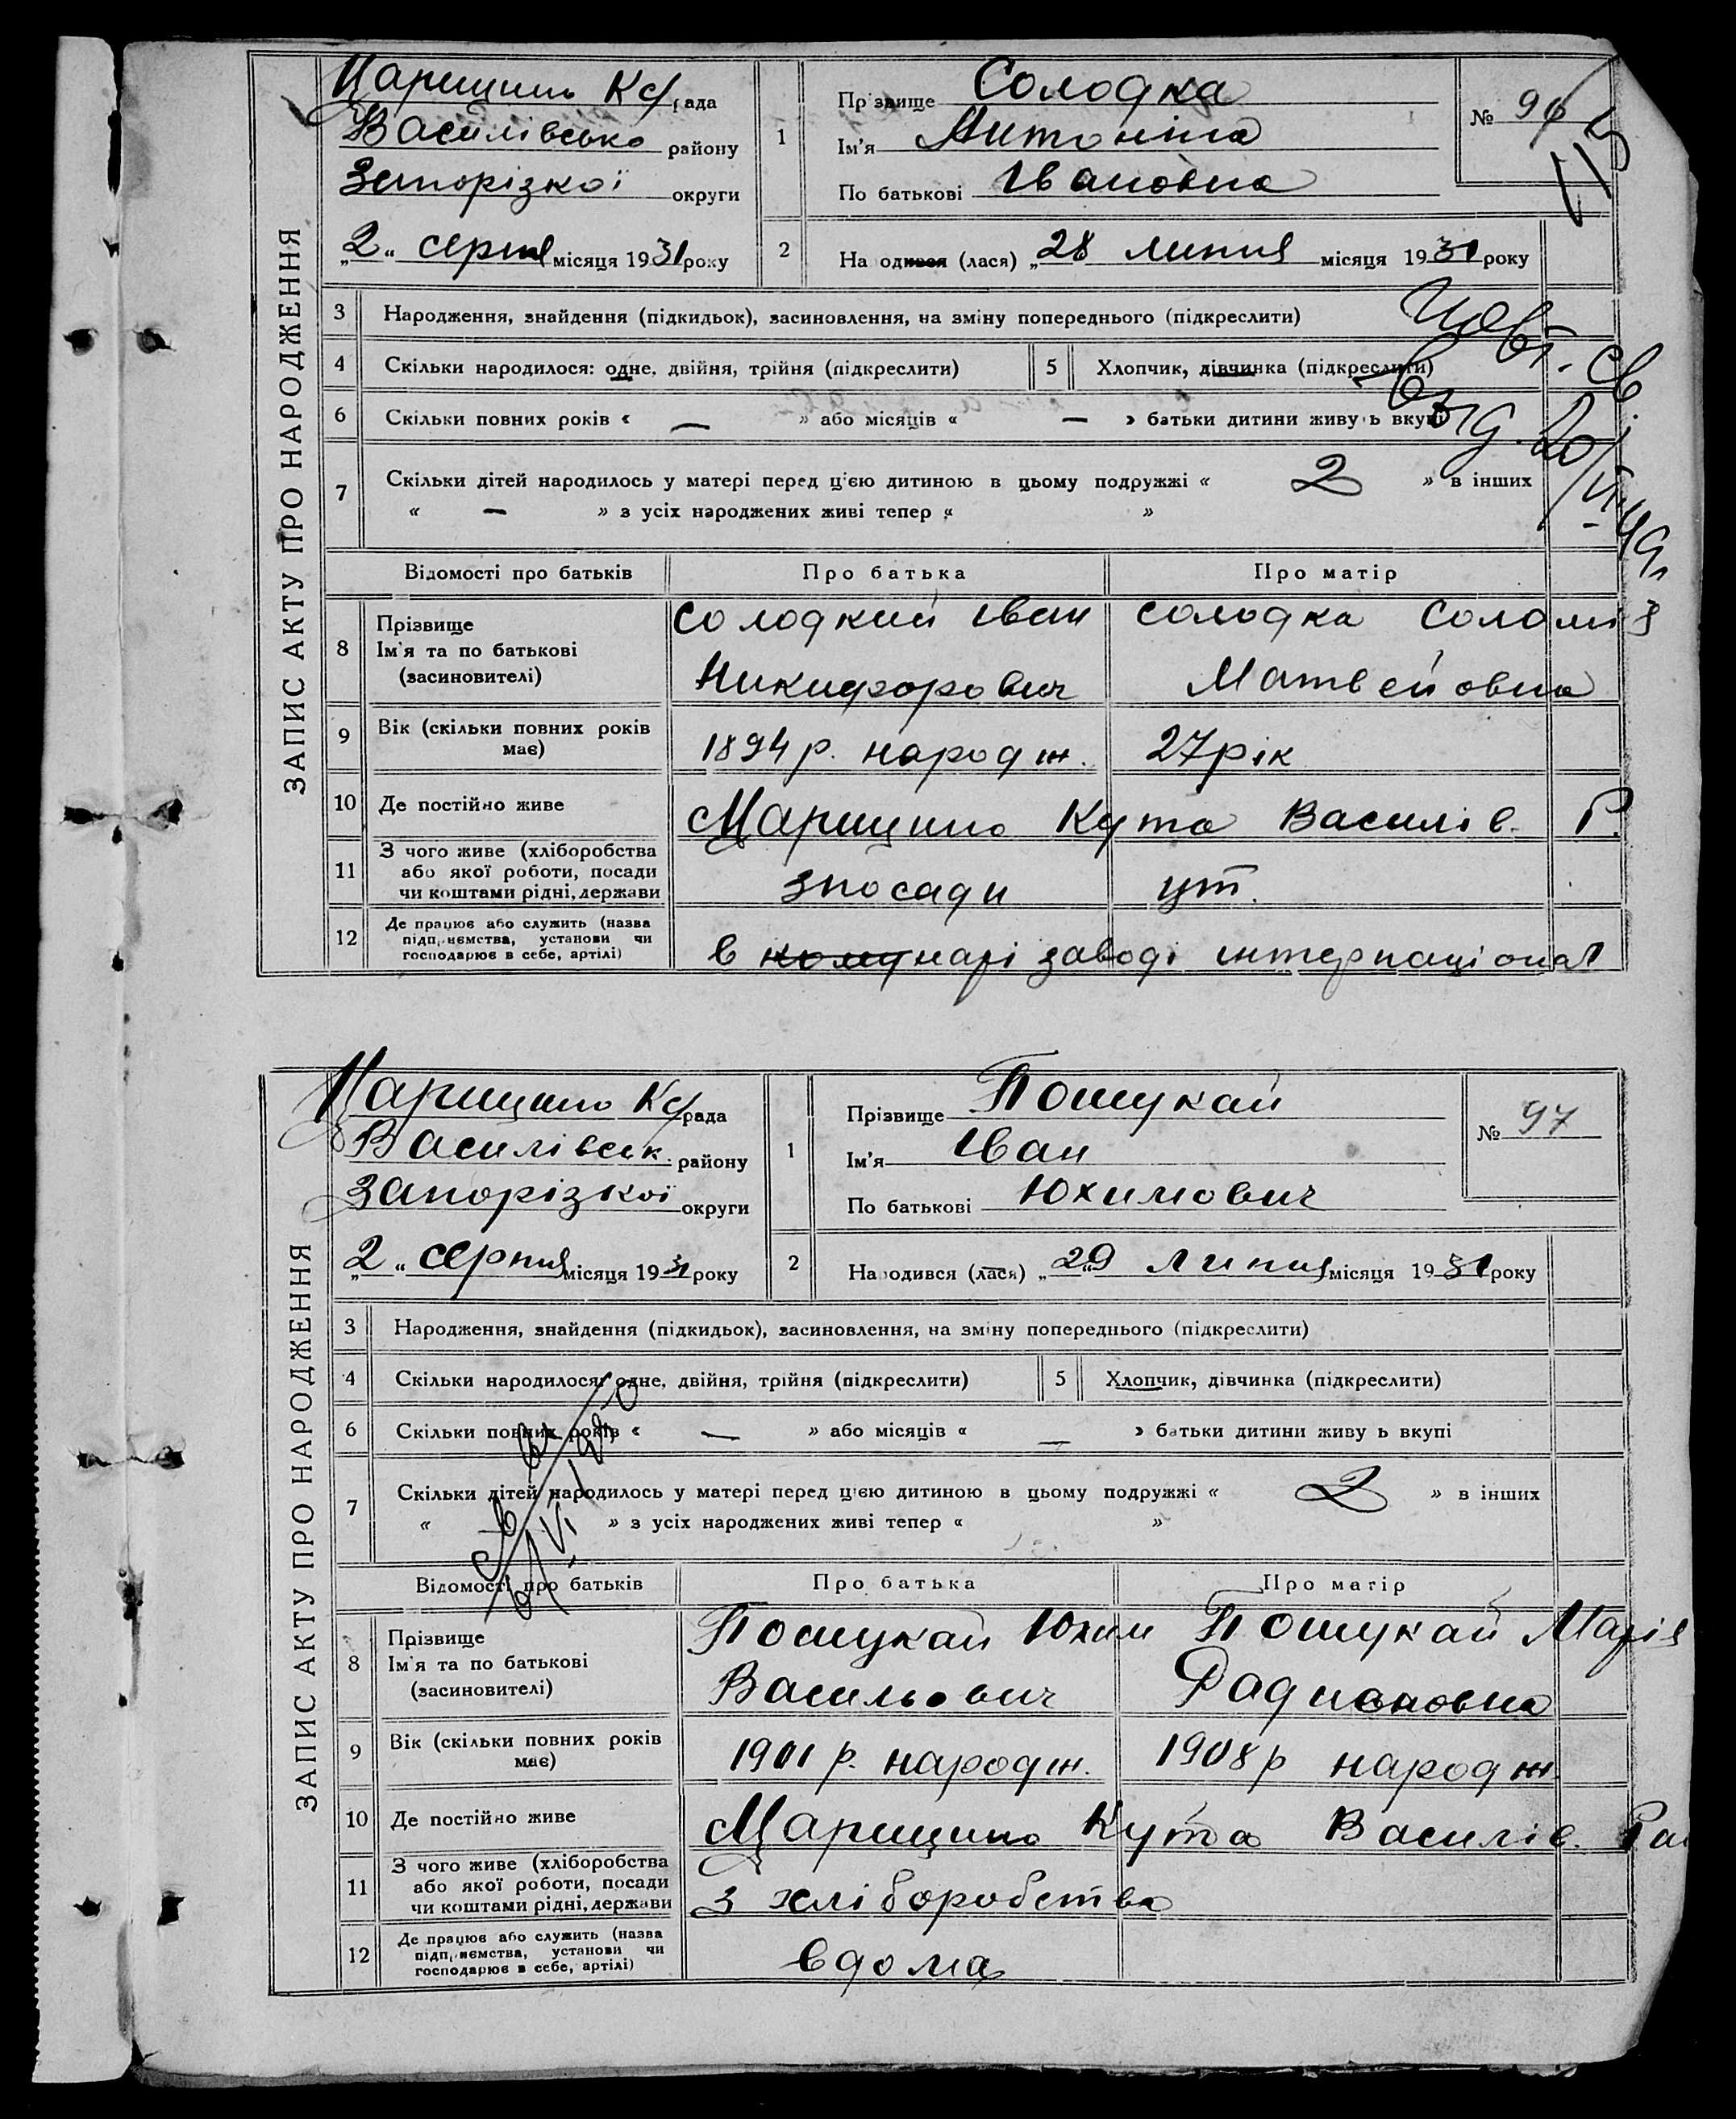 ЗАПИС АКТУ ПРО НАРОДЖЕННЯ
Царицино Ку рада
Василівсько району
Запорізкої округи
„2“ серпня місяця 1931 року
1
Прізвище Солодка
Ім'я Антоніна
По батькові Івановна
№ 96
115
2
На одився (лася) „28 липня місяця 1931 року
3 Народження, знайдення (підкидьок), засиновлення, на зміну попереднього (підкреслити)
4 Скільки народилося: одне, двійня, трійня (підкреслити)
5 Хлопчик, дівчинка (підкреслити)
6 Скільки повних років « — » або місяців « — » батьки дитини живу ь вкупі
7 Скільки дітей народилось у матері перед цією дитиною в цьому подружжі « 2 » в інших
« — » з усіх народжених живі тепер « »
св.
20/VI
Відомості про батьків Про батька Про матір
8 Прізвище
Ім'я та по батькові
(засиновителі)
Солодкий Іван
Никифорович
Солодка Соломія
Матвейовна
9 Вік (скільки повних років має)
1894 р. народж.
27 рік
10 Де постійно живе
Царицино Кута Василів. Р.
11 З чого живе (хліборобства
або якої роботи, посади
чи коштами рідні, держави
зпосади
ут.
12 Де працює або служить (назва
підприємства, установи чи
господарює в себе, артілі)
в заводі интернаціонал
ЗАПИС АКТУ ПРО НАРОДЖЕННЯ
Царицино Ку рада
Василівськ. району
Запорізкої округи
„2“ серпня місяця 1931 року
1
Прізвище Пошукай
Ім'я Іван
По батькові Юхимович
№ 97
2
Народився (лася) „29 липня місяця 1931 року
3 Народження, знайдення (підкидьок), засиновлення, на зміну попереднього (підкреслити)
4 Скільки народилося: одне, двійня, трійня (підкреслити)
5 Хлопчик, дівчинка (підкреслити)
6 Скільки повних років « — » або місяців « — » батьки дитини живу ь вкупі
7 Скільки дітей народилось у матері перед цією дитиною в цьому подружжі « 2 » в інших
« » з усіх народжених живі тепер « »
Відомості про батьків Про батька Про матір
8 Прізвище
Ім'я та по батькові
(засиновителі)
Пошукай Юхим
Васильович
Пошукай Марія
Радионовна
9 Вік (скільки повних років має)
1901 р. народж.
1908 р народж.
10 Де постійно живе
Царицино Кута Василів. Ра
11 З чого живе (хліборобства
або якої роботи, посади
чи коштами рідні, держави
з хліборобства
12 Де працює або служить (назва
підприємства, установи чи
господарює в себе, артілі)
вдома